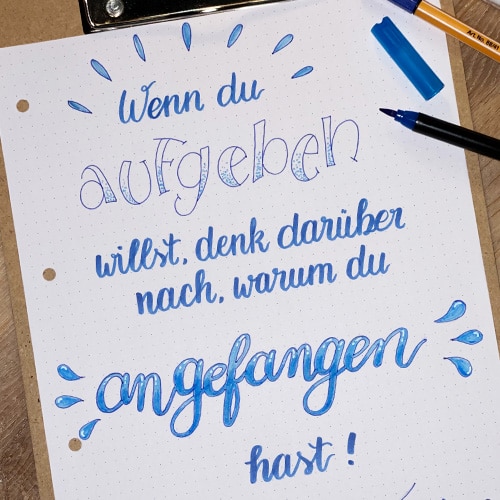 Wenn du
aufgeben
willst, denk darüber
nach, warum du
angefangen
hast!